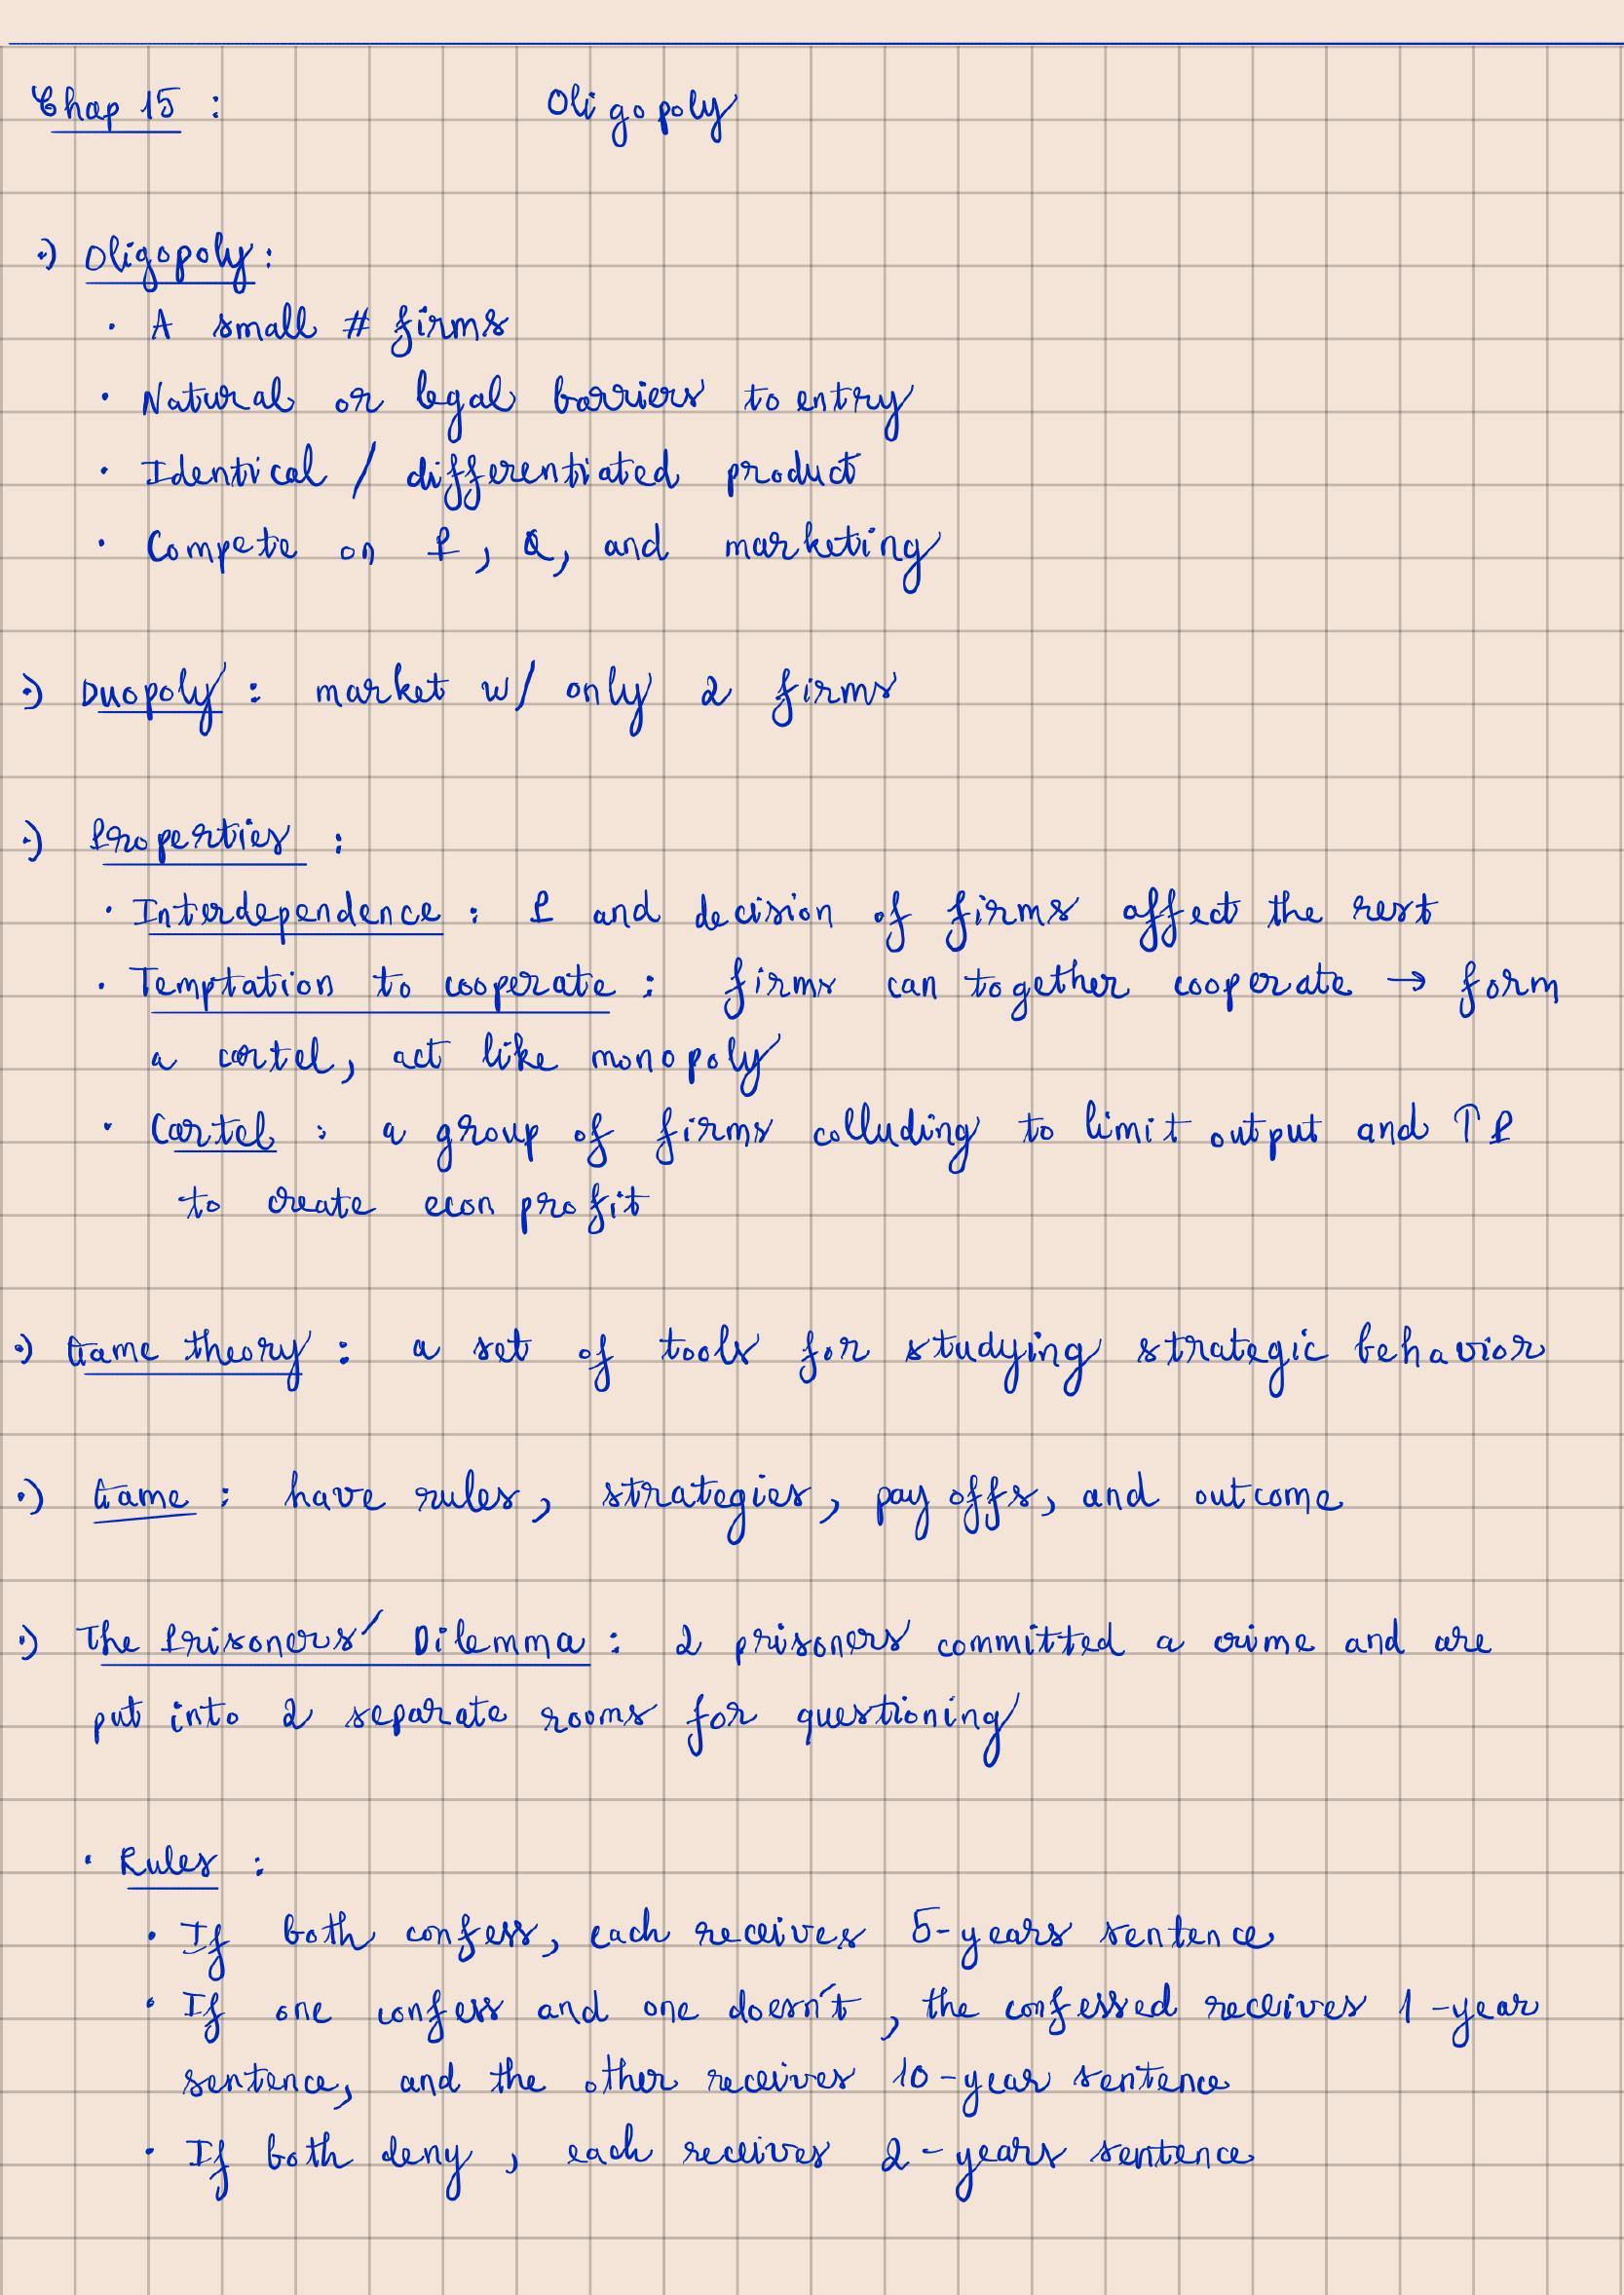 Chap 15 : Oligopoly
·) Oligopoly :
· A small # firms
· Natural or legal barriers to entry
· Identical / differentiated product
· Compete on P, Q, and marketing
·) Duopoly : market w/ only 2 firms
·) Properties :
· Interdependence : P and decision of firms affect the rest
· Temptation to cooperate : firms can together cooperate → form
a cartel, act like monopoly
· Cartel : a group of firms colluding to limit output and ↑ P
to create econ profit
·) Game theory : a set of tools for studying strategic behavior
·) Game : have rules, strategies, pay offs, and outcome
·) The Prisoners' Dilemma : 2 prisoners committed a crime and are
put into 2 separate rooms for questioning
· Rules :
· If both confess, each receives 5-years sentence
· If one confess and one doesn't, the confessed receives 1-year
sentence, and the other receives 10-year sentence
· If both deny, each receives 2-years sentence